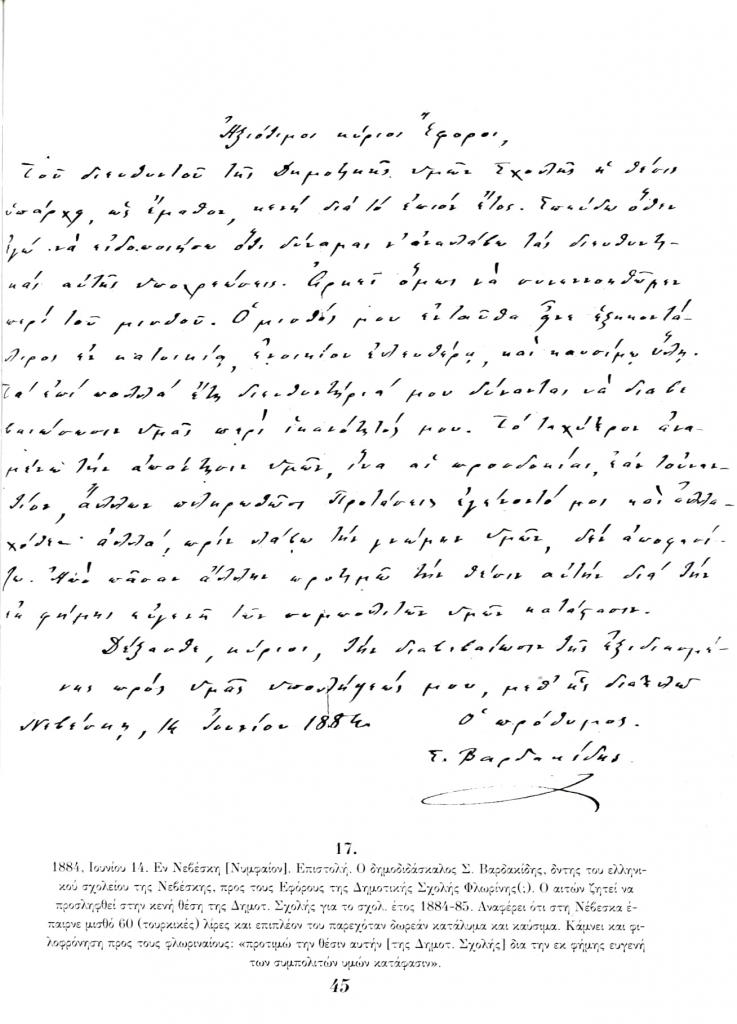 Ἀξιότιμοι κύριοι Ἔφοροι,
Τοῦ διευθυντοῦ τῆς Δημοτικῆς ὑμῶν Σχολῆς ἡ θέσις
ὑπάρχῃ, ὡς ἔμαθον, κενή διά τό ἐπιόν ἔτος. Σπεύδω ὅθεν
ἐγώ νά εἰδοποιήσω ὅτι δύναμαι ν' ἀναλάβω τάς διευθυντ-
κάς αὐτῆς ὑποχρεώσεις. Ἀρκεῖ ὅμως νά συνεννοηθῶμεν
περί τοῦ μισθοῦ. Ὁ μισθός μου ἐνταῦθα ἦνε ἑξηκοντά-
λιρος ἐν κατοικίᾳ, ἐνοικίου ἐλευθέρᾳ, καί καυσίμῳ ὕλῃ.
Τά ἐπί πολλά ἔτη διευθυντήριά μου δύνανται νά διαβε
βαιώσωσιν ὑμᾶς περί ἱκανότητός μου. Τό ταχύτερον ἀνα-
μένω τήν ἀπάντησιν ὑμῶν, ἵνα αἱ προσδοκίαι, ἐάν τοὐναν-
τίον, ἄλλων πληρωθῶσι. Προτάσεις ἐγένοντό μοι καί ἀλλα-
χόθεν ἀλλά, πρίν λάβω τήν γνώμην ὑμῶν, δέν ἀποφασί-
ζω. Ἀπό πᾶσαν ἄλλην προτιμῶ τήν θέσιν αὐτήν διά τήν
ἐκ φήμης εὐγενῆ τῶν συμπολιτῶν ὑμῶν κατάφασιν.
Δέξασθε, κύριοι, τήν διαβεβαίωσιν τῆς ἐξιδιασμέ-
νης πρός ὑμᾶς ὑπολήψεώς μου, μεθ' ἧς διατελῶ
Νεβέσκη, 14 Ἰουνίου 1884 Ὁ πρόθυμος.
Σ. Βαρδακίδης
17.
1884, Ιουνίου 14. Εν Νεβέσκη [Νυμφαίον]. Επιστολή. Ο δημοδιδάσκαλος Σ. Βαρδακίδης, δντης του ελληνι-
κού σχολείου της Νεβέσκης, προς τους Εφόρους της Δημοτικής Σχολής Φλωρίνης(;). Ο αιτών ζητεί να
προσληφθεί στην κενή θέση της Δημοτ. Σχολής για το σχολ. έτος 1884-85. Αναφέρει ότι στη Νέβεσκα έ-
παιρνε μισθό 60 (τουρκικές) λίρες και επιπλέον του παρεχόταν δωρεάν κατάλυμα και καύσιμα. Κάμνει και φι-
λοφρόνηση προς τους φλωριναίους: «προτιμώ την θέσιν αυτήν [της Δημοτ. Σχολής] δια την εκ φήμης ευγενή
των συμπολιτών υμών κατάφασιν».
45